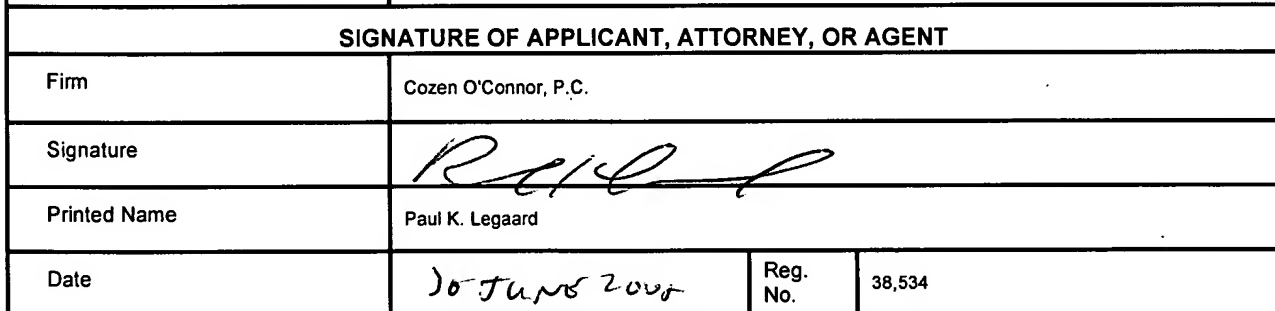 SIGNATURE OF APPLICANT, ATTORNEY, OR AGENT
Firm Cozen O'Connor, P.C.
Signature
Printed Name Paul K. Legaard
Date JUNE Reg. No. 38,534